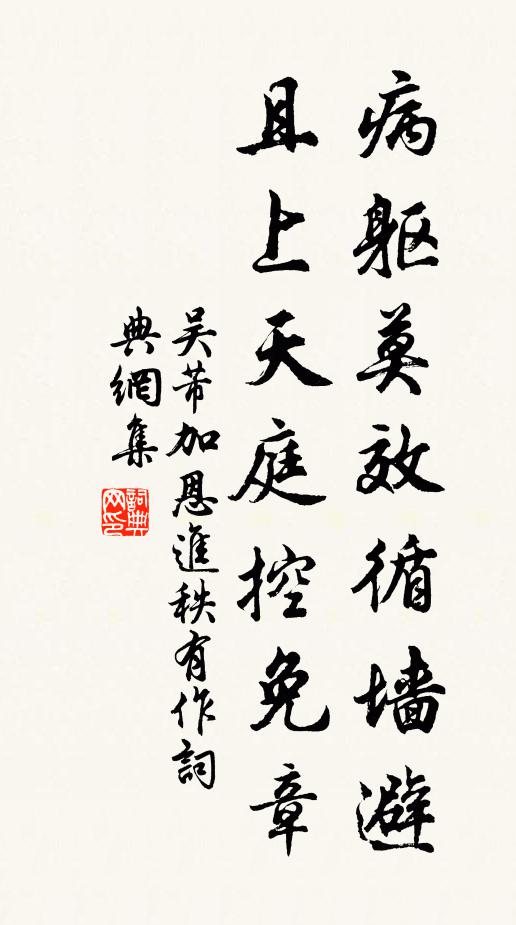 病躯莫效循墙避
且上天庭控免章
吴芾加恩進秩有作詞
典網集
詞典网印